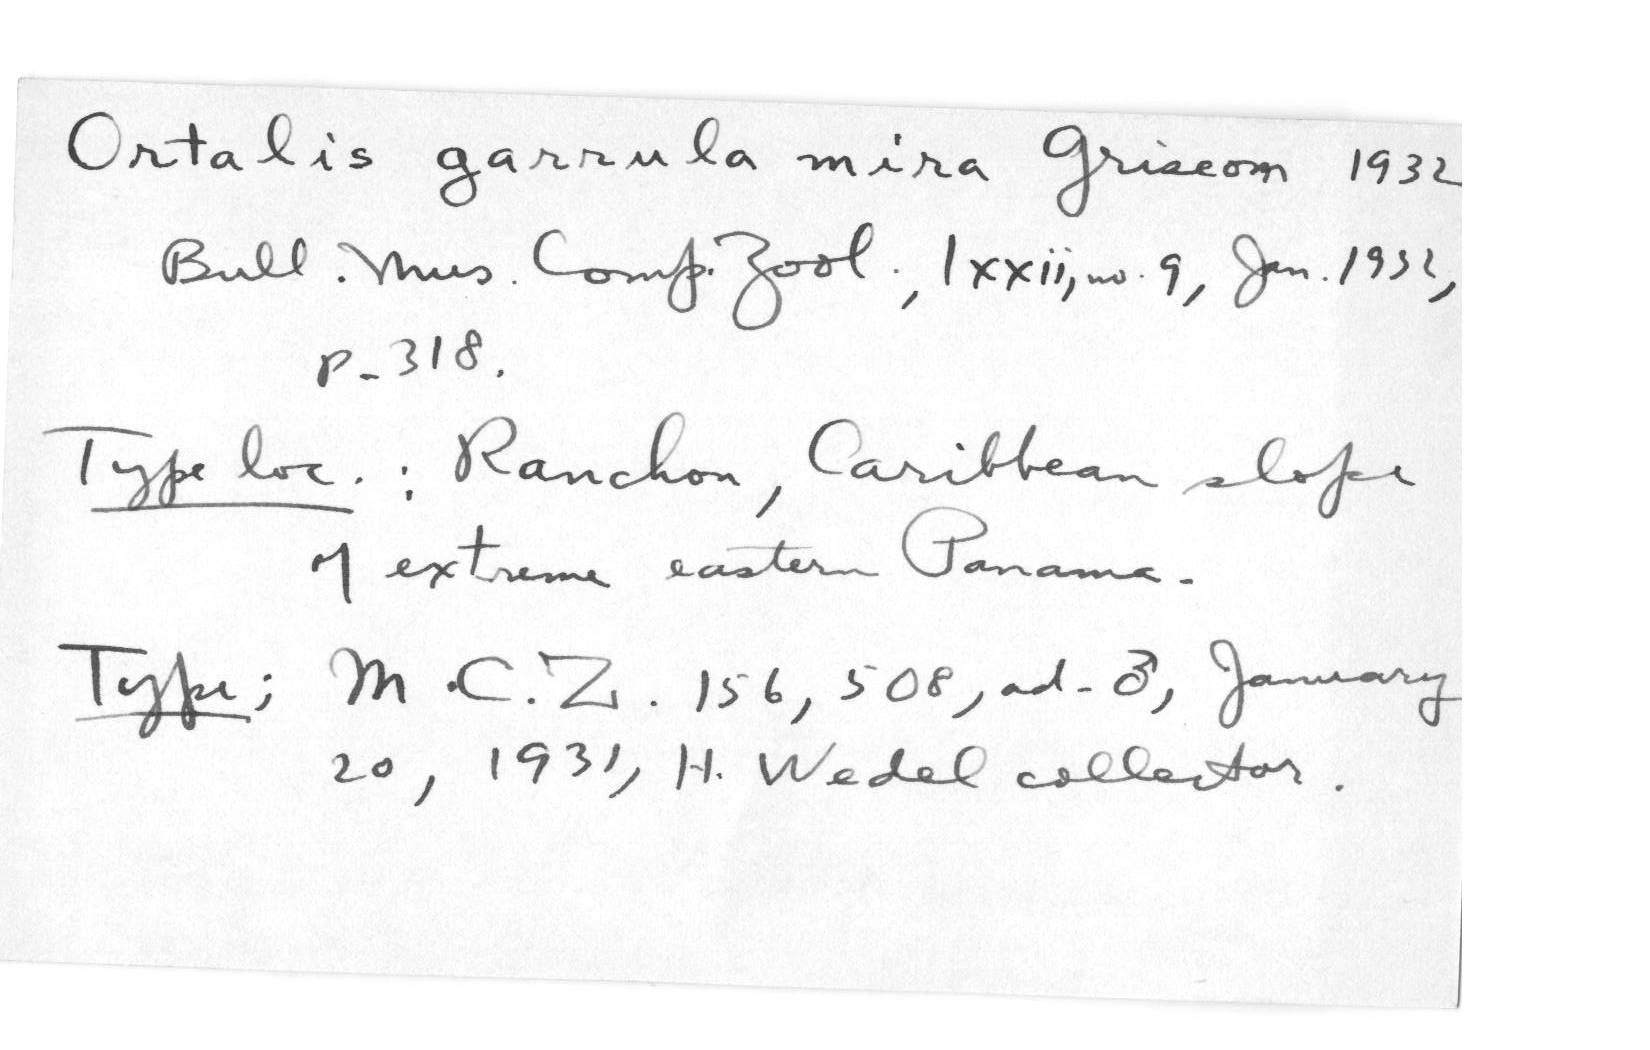 Ortalis garrula mira Griscom 1932
Bull. Mus. Comp. Zool., lxxii, no. 9, Jan. 1932,
p. 318.
Type loc.: Ranchon, Caribbean slope
of extreme eastern Panama.
Type; M.C.Z. 156,508, ad. ♂, January
20, 1931, H. Wedel collector.